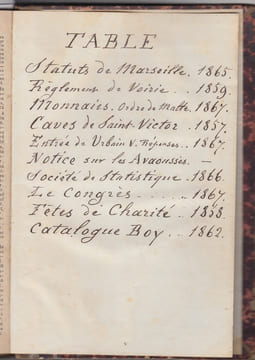 TABLE
Statuts de Marseille. 1865.
Règlement de Voirie .. 1859.
Monnaies. Ordre de Malte. 1867.
Caves de Saint-Victor. 1857.
Entrée de Urbain V. Réponses .. 1867.
Notice sur les Avaoussés. —
Société de Statistique. 1866.
Le Congrès ...... 1867.
Fêtes de Charité .. 1858.
Catalogue Boy ... 1862.